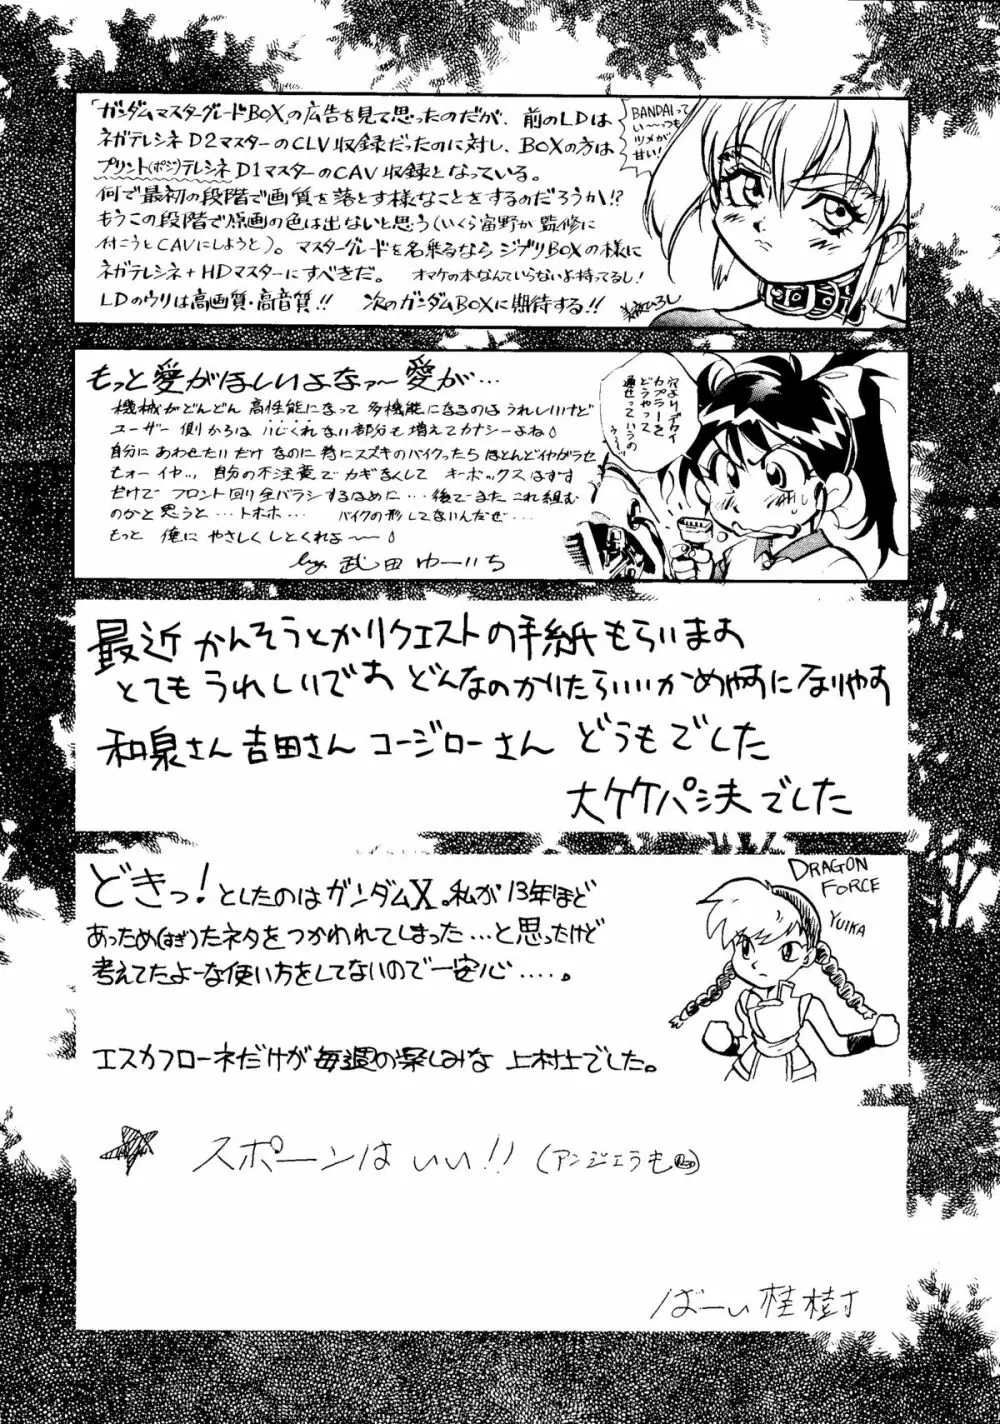 「ガンダムマスターグレードBOX」の広告を見て思ったのだが、前のLDは
ネガテレシネ D2マスターのCLV収録だったのに対し、BOXの方は
プリント(ポジ)テレシネ D1マスターのCAV収録となっている。
何で最初の段階で画質を落とす様なことをするのだろうか!?
もうこの段階で原画の色は出ないと思う(いくら富野が監修に
付こうとCAVにしようと)。マスターグレードを名乗るならジブリBOXの様に
ネガテレシネ+HDマスターにすべきだ。 オマケの本なんていらないよ持ってるし!
LDのウリは高画質・高音質!! 次のガンダムBOXに期待する!!
BANDAIって
い〜〜つも
ツメが
甘い!
もっと愛がほしいよなァ〜愛が…
機械がどんどん 高性能になって 多機能になるのは うれしいけど
ユーザー 側からは いじくれない部分も 増えてカナシーよね
自分に あわせたいだけ なのに 特にスズキのバイクったら ほとんどイヤがラセ
もォーイヤッ、自分の不注意で カギなくして キーボックスはずす
だけで フロント回り全バラシするはめに…後でまた これ組む
のかと 思うと…トホホ… バイクの形してないんだぜ…
もっと 俺に やさしくしとくれよ〜〜
by 武田ゆーいち
穴よりデカイ
カプラーを
どうやって
通せっていうの
最近 かんそうとかリクエストの手紙 もらいまお
とても うれしいでお どんなのかいたらいいか めやすになりやす
和泉さん 吉田さん コージローさん どうもでした
大ケケパ夫でした
どきっ!としたのはガンダムX。私が13年ほど
あっため(すぎ)たネタをつかわれてしまった…と思ったけど
考えてたよーな使い方をしてないので一安心……。
エスカフローネだけが毎週の楽しみな 上村士でした。
DRAGON
FORCE
YUIKA
スポーンは いい!! (アンジェラも)
ばーい 桂樹